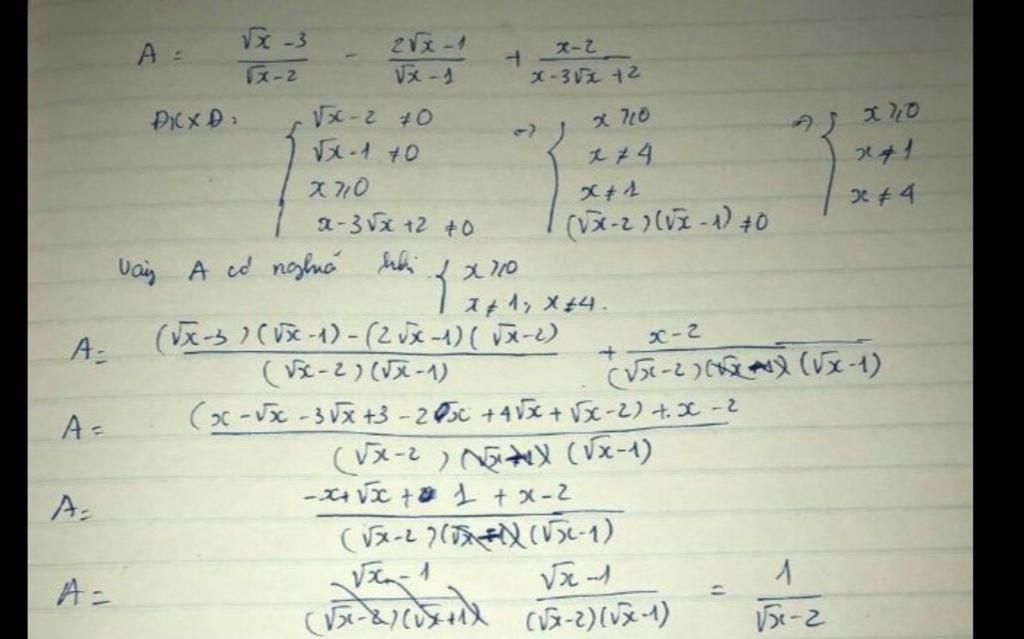 A = (√x - 3)/(√x - 2) - (2√x - 1)/(√x - 1) + (x - 2)/(x - 3√x + 2)
ĐKXĐ: { √x - 2 ≠ 0 ; √x - 1 ≠ 0 ; x ⩾ 0 ; x - 3√x + 2 ≠ 0 => { x ⩾ 0 ; x ≠ 4 ; x ≠ 1 ; (√x - 2)(√x - 1) ≠ 0 => { x ⩾ 0 ; x ≠ 1 ; x ≠ 4
Vậy A có nghĩa khi { x ⩾ 0 ; x ≠ 1, x ≠ 4.
A = ((√x - 3)(√x - 1) - (2√x - 1)(√x - 2))/((√x - 2)(√x - 1)) + (x - 2)/((√x - 2)(√x - 1))
A = ((x - √x - 3√x + 3 - 2x + 4√x + √x - 2) + x - 2)/((√x - 2)(√x - 1))
A = (-x + √x + 1 + x - 2)/((√x - 2)(√x - 1))
A = (√x - 1)/((√x - 2)(√x - 1)) = 1/(√x - 2)